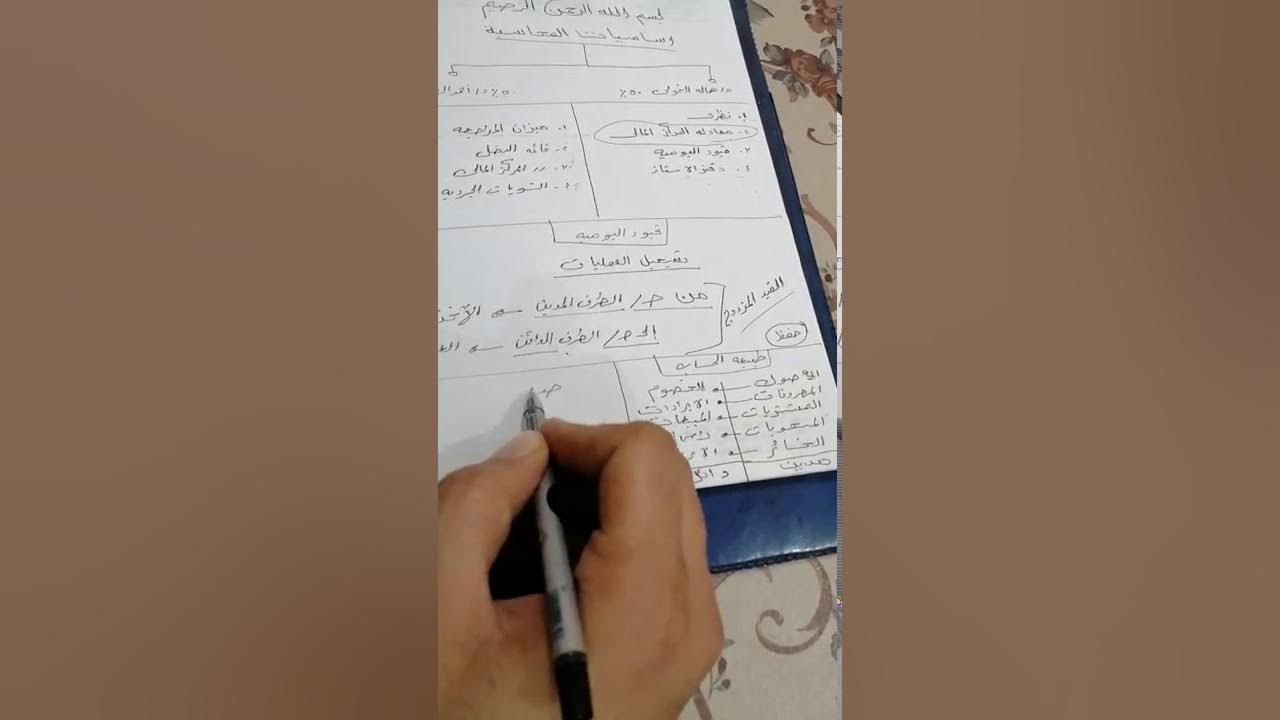 بسم الله الرحمن الرحيم
اساسيات المحاسبة
د/ هاله الخولى ٥٠٪
٥٠٪ د/ أحمد
١. نظرى
٢. معادله المركز المالى
٣. قيود اليوميه
٤. دفتر الاستاذ
١. ميزان المراجعه
٢. قائمه الدخل
٣. 〃 المركز المالى
٤. التسويات الجرديه
قيود اليوميه
تسجيل العمليات
القيد المزدوج
من ح/ الطرف المدين
الى ح/ الطرف الدائن
حفظ
طبيعه الحساب
الاصول الخصوم
المصروفات الايرادات
المشتريات المبيعات
المسحوبات
الخسائر
مدين